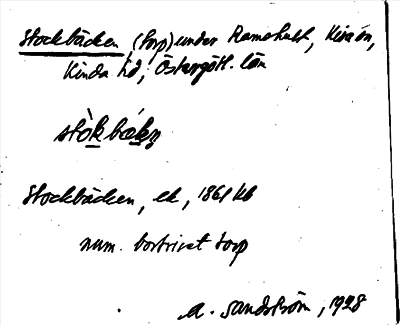 Stockbäcken (torp) under Ramshult, Kisa sn,
Kinda hd, Östergötl. län
stòkbækn
Stockbäcken, ek, 1861 kb
num. bortrivet torp
A. Sandström, 1928